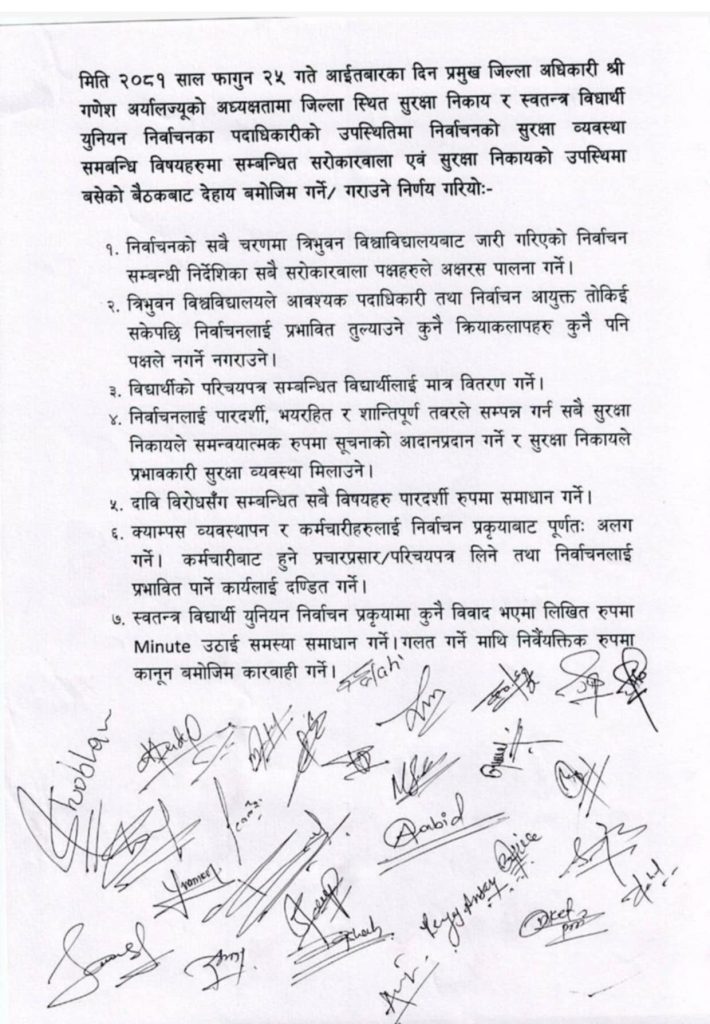 मिति २०८१ साल फागुन २५ गते आईतबारका दिन प्रमुख जिल्ला अधिकारी श्री
गणेश अर्यालज्यूको अध्यक्षतामा जिल्ला स्थित सुरक्षा निकाय र स्वतन्त्र विद्यार्थी
युनियन निर्वाचनका पदाधिकारीको उपस्थितिमा निर्वाचनको सुरक्षा व्यवस्था
समबन्धि विषयहरुमा सम्बन्धित सरोकारवाला एवं सुरक्षा निकायको उपस्थिमा
बसेको बैठकबाट देहाय बमोजिम गर्ने/ गराउने निर्णय गरियोः-
१. निर्वाचनको सबै चरणमा त्रिभुवन विश्वाविद्यालयबाट जारी गरिएको निर्वाचन
सम्बन्धी निर्देशिका सबै सरोकारवाला पक्षहरुले अक्षरस पालना गर्ने।
२. त्रिभुवन विश्वविद्यालयले आवश्यक पदाधिकारी तथा निर्वाचन आयुक्त तोकिई
सकेपछि निर्वाचनलाई प्रभावित तुल्याउने कुनै क्रियाकलापहरु कुनै पनि
पक्षले नगर्ने नगराउने।
३. विद्यार्थीको परिचयपत्र सम्बन्धित विद्यार्थीलाई मात्र वितरण गर्ने।
४. निर्वाचनलाई पारदर्शी, भयरहित र शान्तिपूर्ण तवरले सम्पन्न गर्न सबै सुरक्षा
निकायले समन्वयात्मक रुपमा सूचनाको आदानप्रदान गर्ने र सुरक्षा निकायले
प्रभावकारी सुरक्षा व्यवस्था मिलाउने।
५. दावि विरोधसँग सम्बन्धित सबै विषयहरु पारदर्शी रुपमा समाधान गर्ने।
६. क्याम्पस व्यवस्थापन र कर्मचारीहरुलाई निर्वाचन प्रकृयाबाट पूर्णतः अलग
गर्ने। कर्मचारीबाट हुने प्रचारप्रसार/परिचयपत्र लिने तथा निर्वाचनलाई
प्रभावित पार्ने कार्यलाई दण्डित गर्ने।
७. स्वतन्त्र विद्यार्थी युनियन निर्वाचन प्रकृयामा कुनै विवाद भएमा लिखित रुपमा
Minute उठाई समस्या समाधान गर्ने।गलत गर्ने माथि निर्वैयक्तिक रुपमा
कानून बमोजिम कारवाही गर्ने।
Aabid